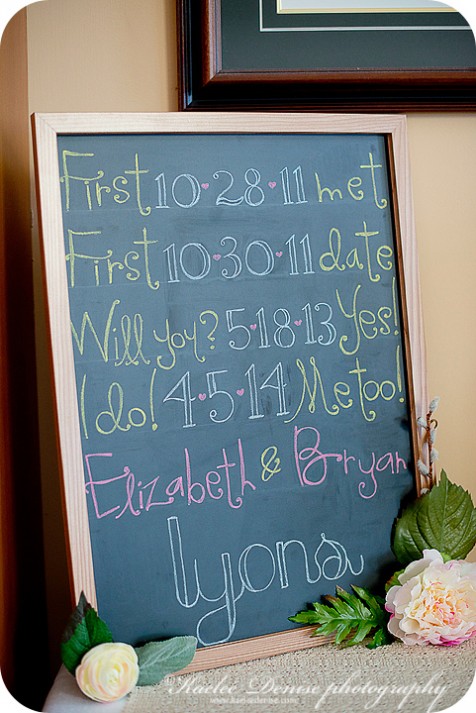 First 10·28·11 met
First 10·30·11 date
Will you? 5·18·13 Yes!
I do! 4·5·14 Me too!
Elizabeth & Bryan
lyons
Kaelée Denise photography